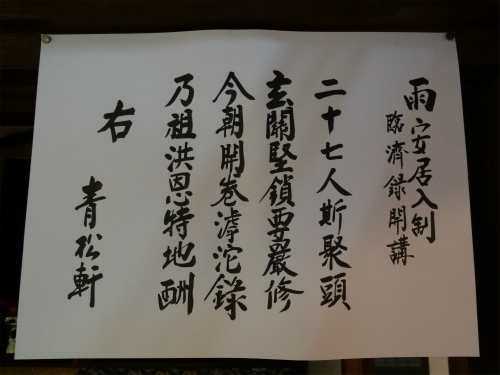 雨安居入制
臨濟録開講
二十七人斯聚頭
玄關堅鎖要嚴修
今朝開巻滹沱錄
乃祖洪恩特地酬
右
青松軒